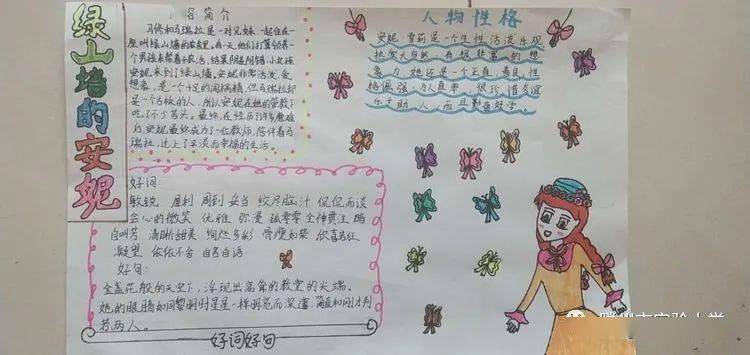 绿山墙的安妮
内容简介
马修和马瑞拉是一对兄妹,一起住在一
座叫绿山墙的农舍里。有一天他们打算领养一
个男孩来帮着干农活,结果阴差阳错,小女孩
安妮来到了绿山墙。安妮非常活泼,爱
想象,是一个十足的闯祸精,但马瑞拉却
是一个古板的人,所以安妮在她的管教下
吃了不少苦头。最终,在经历了许多磨难
后,安妮最终成为了一位教师,陪伴着马
瑞拉,过上了平淡而幸福的生活。
人物性格
安妮·雪莉是一个生性活泼乐观,
热爱大自然,有极丰富的想
象力,她还是一个正直、善良、性
格倔强、为人直率,很珍惜友谊
乐于助人,而且勤奋好学。
好词:
敏锐 犀利 周到 妥当 绞尽脑汁 侃侃而谈
会心的微笑 优雅 弥漫 孤零零 全神贯注 暗
自叫苦 清晰甜美 绚烂多彩 骨瘦如柴 欣喜若狂
凝望 依依不舍 自言自语
好句:
金盏花般的天空下,浮现出高耸的教堂的尖端。
她的眼睛如同黎明时星星一样明亮而深邃,简直和刚才判
若两人。
好词好句
滕州市实验小学